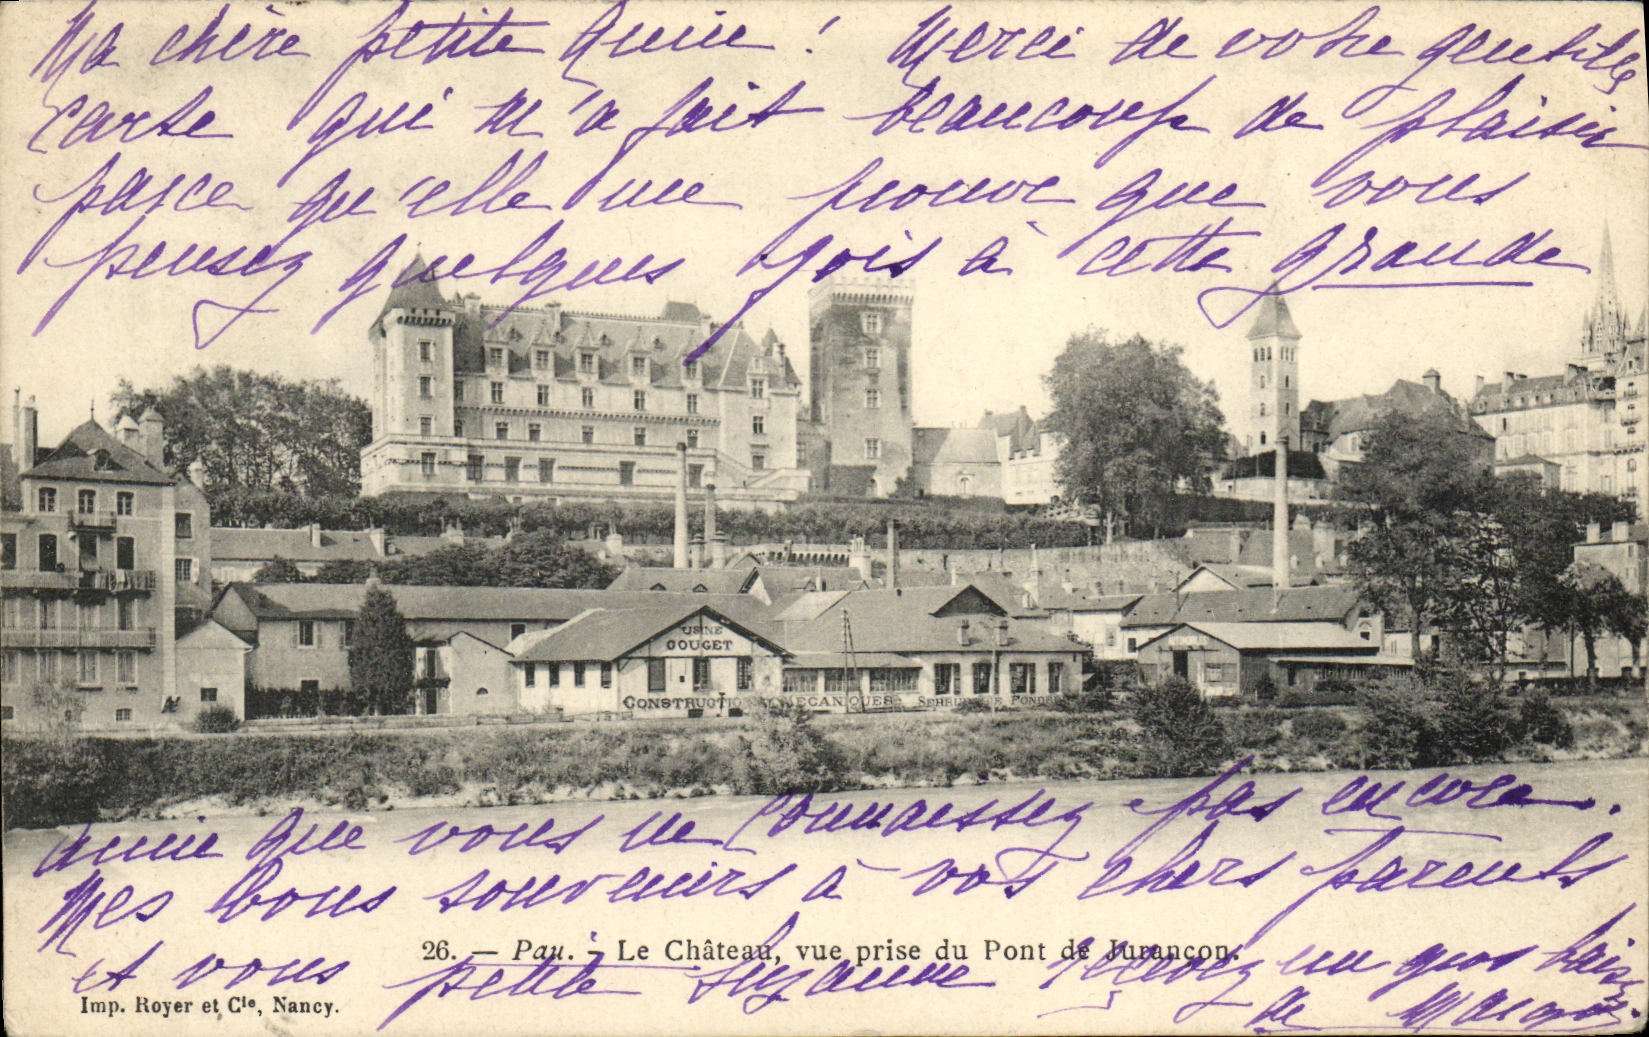 Ma chère petite amie ! Merci de votre gentille
carte qui m'a fait beaucoup de plaisir
parce qu'elle me prouve que vous
pensez quelques fois à cette grande
USINE
GOUGET
CONSTRUCTIONS MÉCANIQUES
amie que vous ne connaissez pas encore.
Mes bons souvenirs à vos chers parents
et vous petite Suzanne recevez un gros baiser
de
26. — Pau. — Le Château, vue prise du Pont de Jurançon.
Imp. Royer et Cie, Nancy.